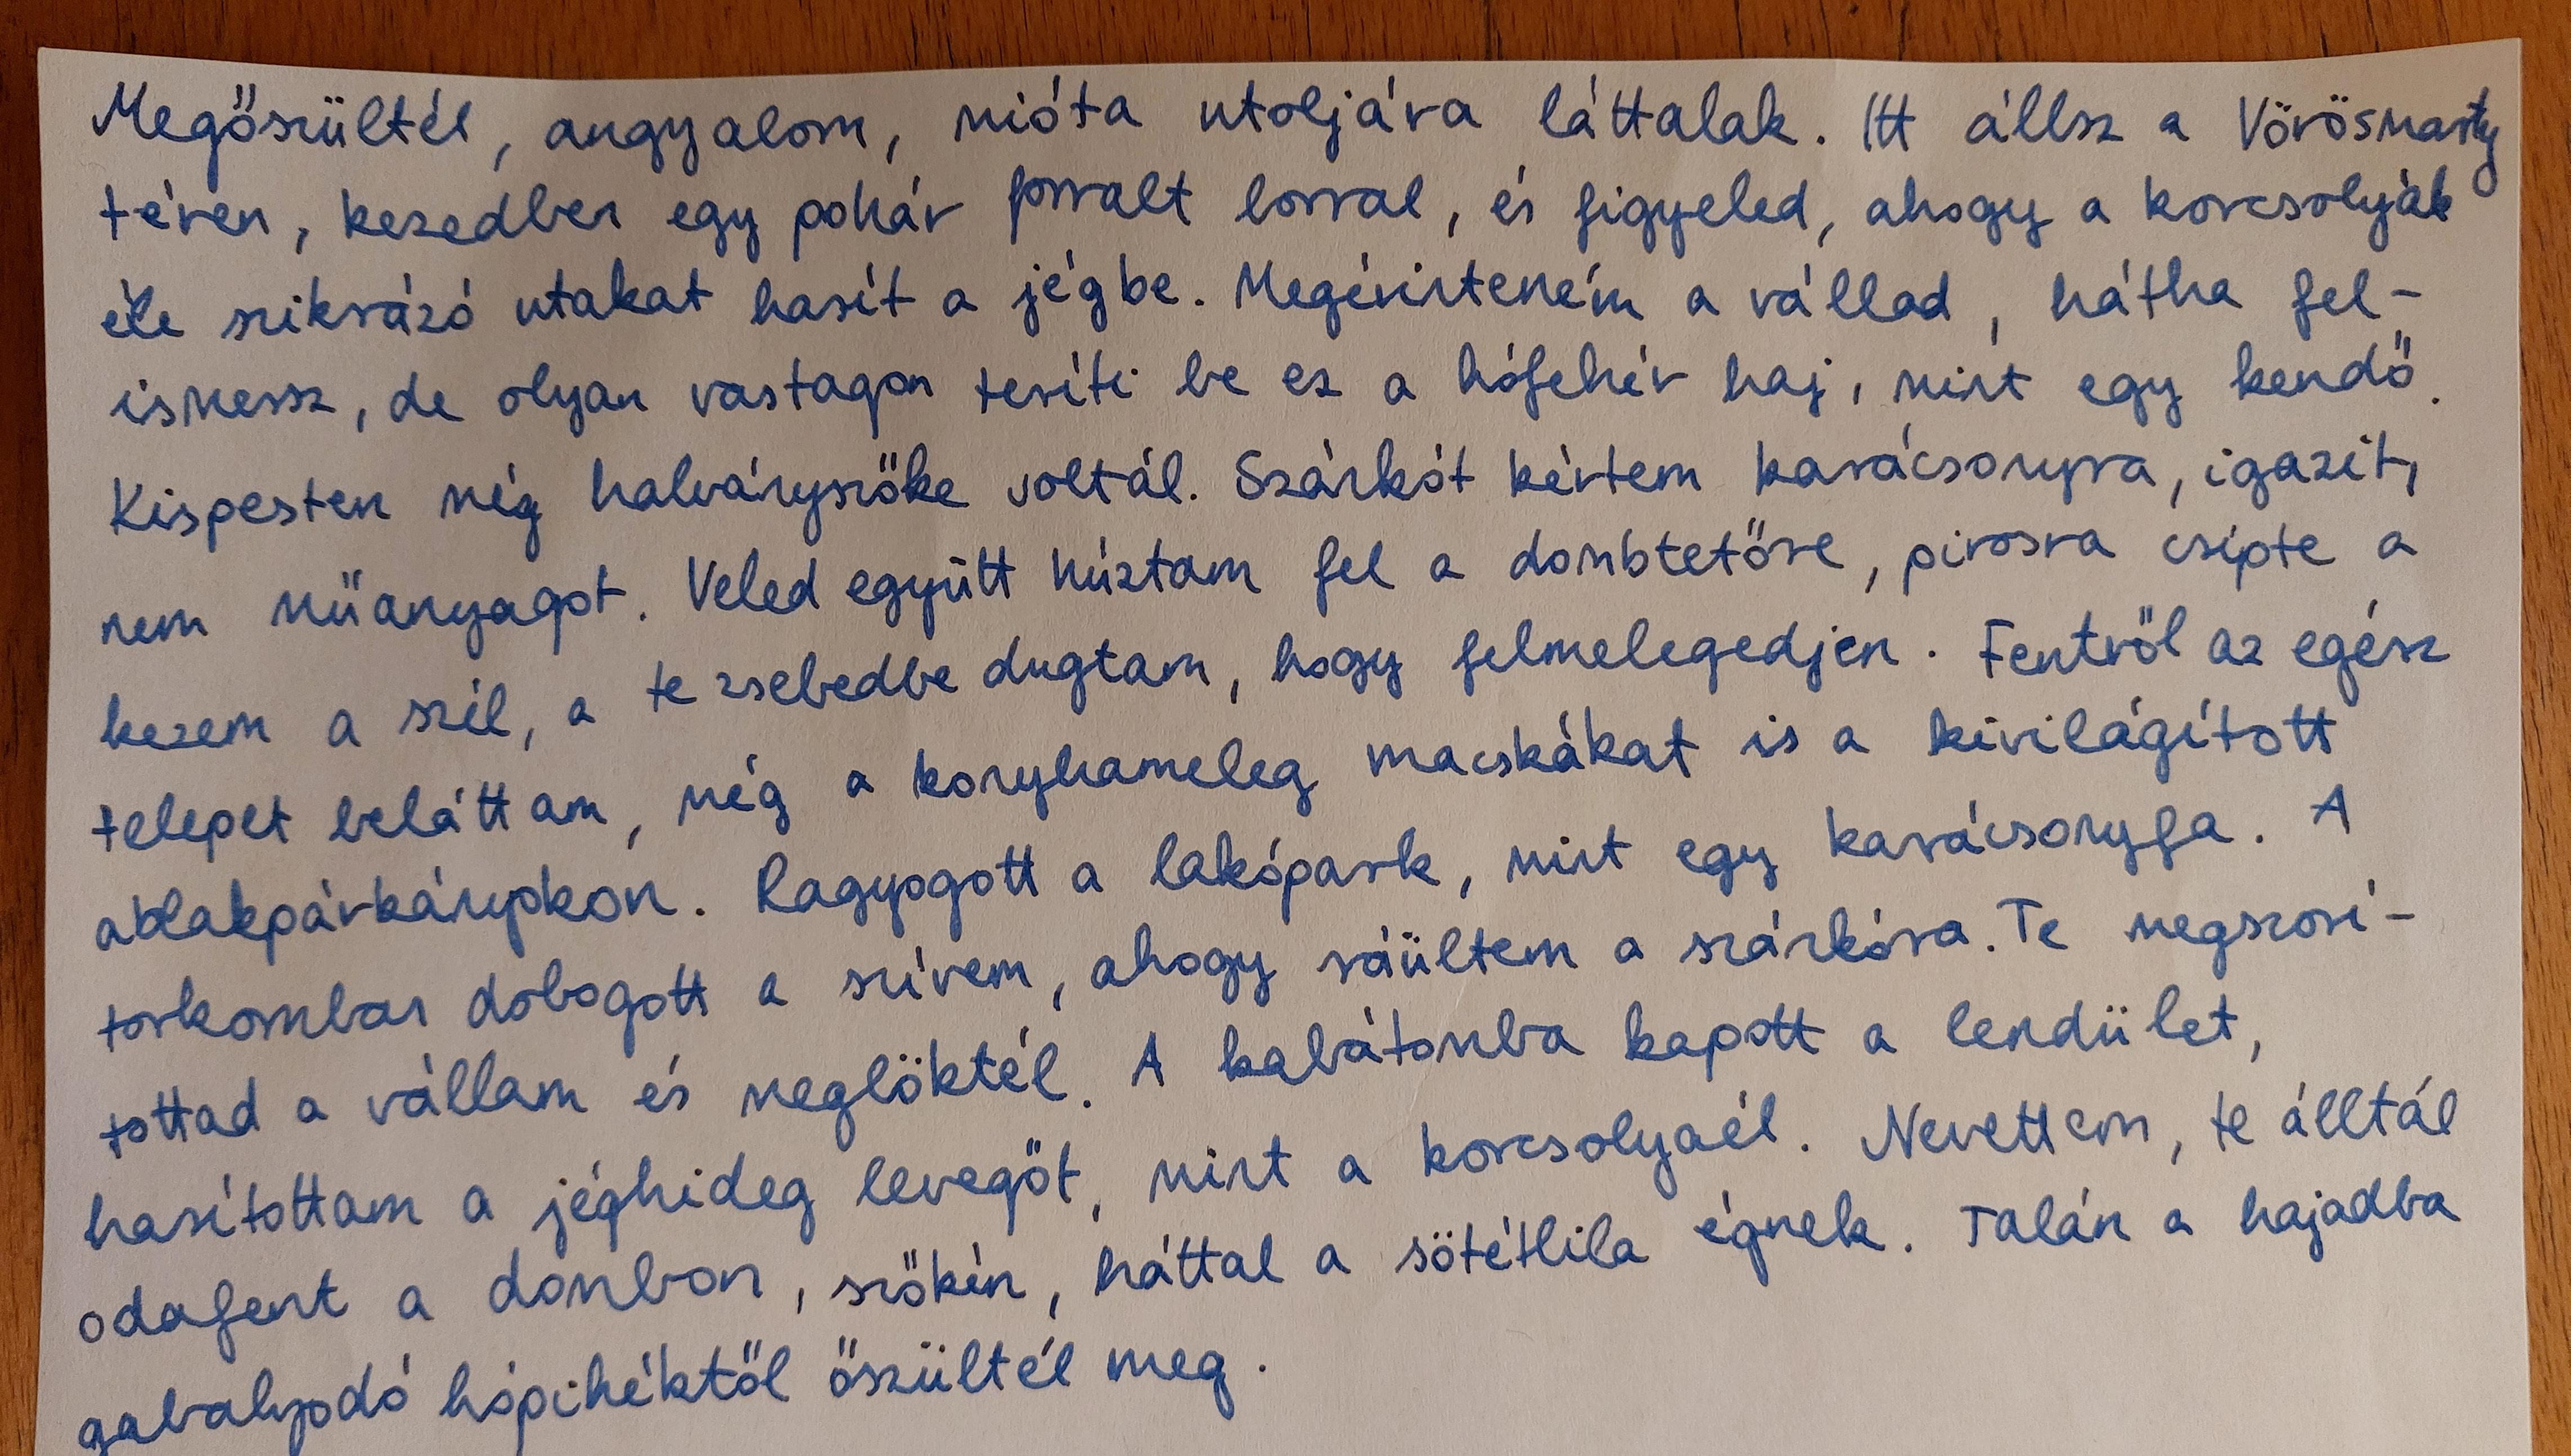 Megőszültél, angyalom, mióta utoljára láttalak. Itt állsz a Vörösmarty
téren, kezedben egy pohár forralt borral, és figyeled, ahogy a korcsolyák
éle szikrázó utakat hasít a jégbe. Megérinteném a vállad, hátha fel-
ismersz, de olyan vastagon teríti be ez a hófehér haj, mint egy kendő.
Kispesten még halványszőke voltál. Szánkót kértem karácsonyra, igazit,
nem műanyagot. Veled együtt húztam fel a dombtetőre, pirosra csípte a
kezem a szél, a te zsebedbe dugtam, hogy felmelegedjen. Fentről az egész
telepet beláttam, még a konyhameleg macskákat is a kivilágított
ablakpárkányokon. Ragyogott a lakópark, mint egy karácsonyfa. A
torkomban dobogott a szívem, ahogy ráültem a szánkóra. Te megszorí-
tottad a vállam és meglöktél. A kabátomba kapott a lendület,
hasítottam a jéghideg levegőt, mint a korcsolyaél. Nevettem, te álltál
odafent a dombon, szőkén, háttal a sötétlila égnek. Talán a hajadba
gabalyodó hópihéktől őszültél meg.